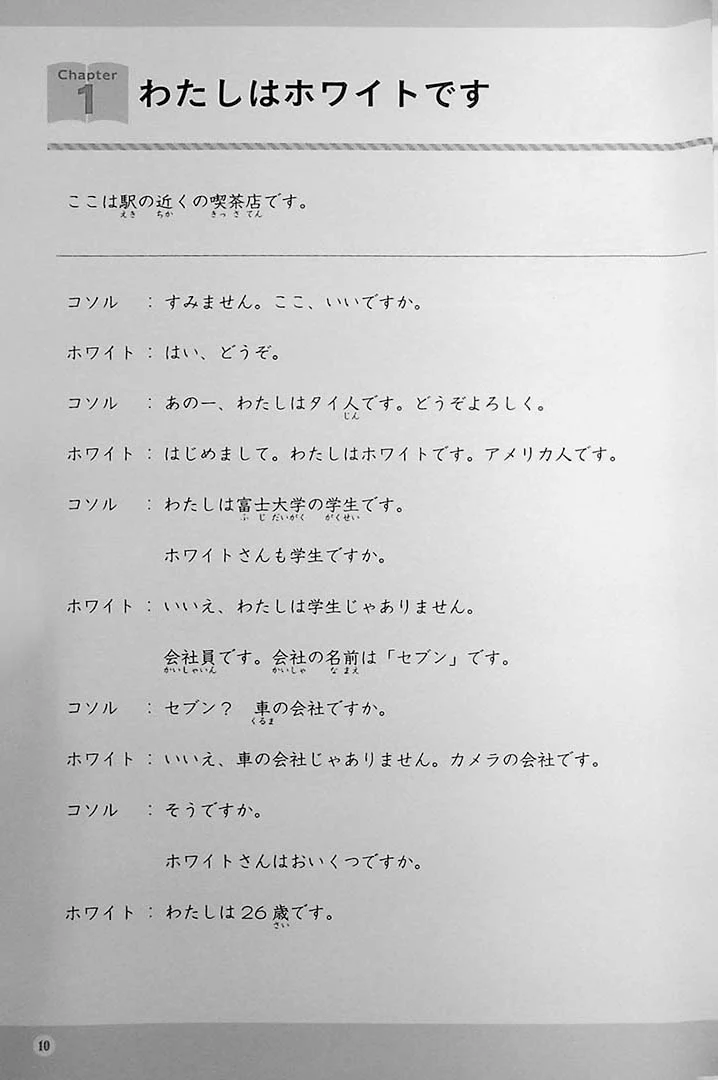 Chapter
1
わたしはホワイトです
ここは駅の近くの喫茶店です。
えき ちか きっ さ てん
コソル : すみません。ここ、いいですか。
ホワイト : はい、どうぞ。
コソル : あのー、わたしはタイ人です。どうぞよろしく。
じん
ホワイト : はじめまして。わたしはホワイトです。アメリカ人です。
コソル : わたしは富士大学の学生です。
ふ じ だいがく がくせい
ホワイトさんも学生ですか。
ホワイト : いいえ、わたしは学生じゃありません。
会社員です。会社の名前は「セブン」です。
かいしゃいん かいしゃ な まえ
コソル : セブン? 車の会社ですか。
くるま
ホワイト : いいえ、車の会社じゃありません。カメラの会社です。
コソル : そうですか。
ホワイトさんはおいくつですか。
ホワイト : わたしは26歳です。
さい
10